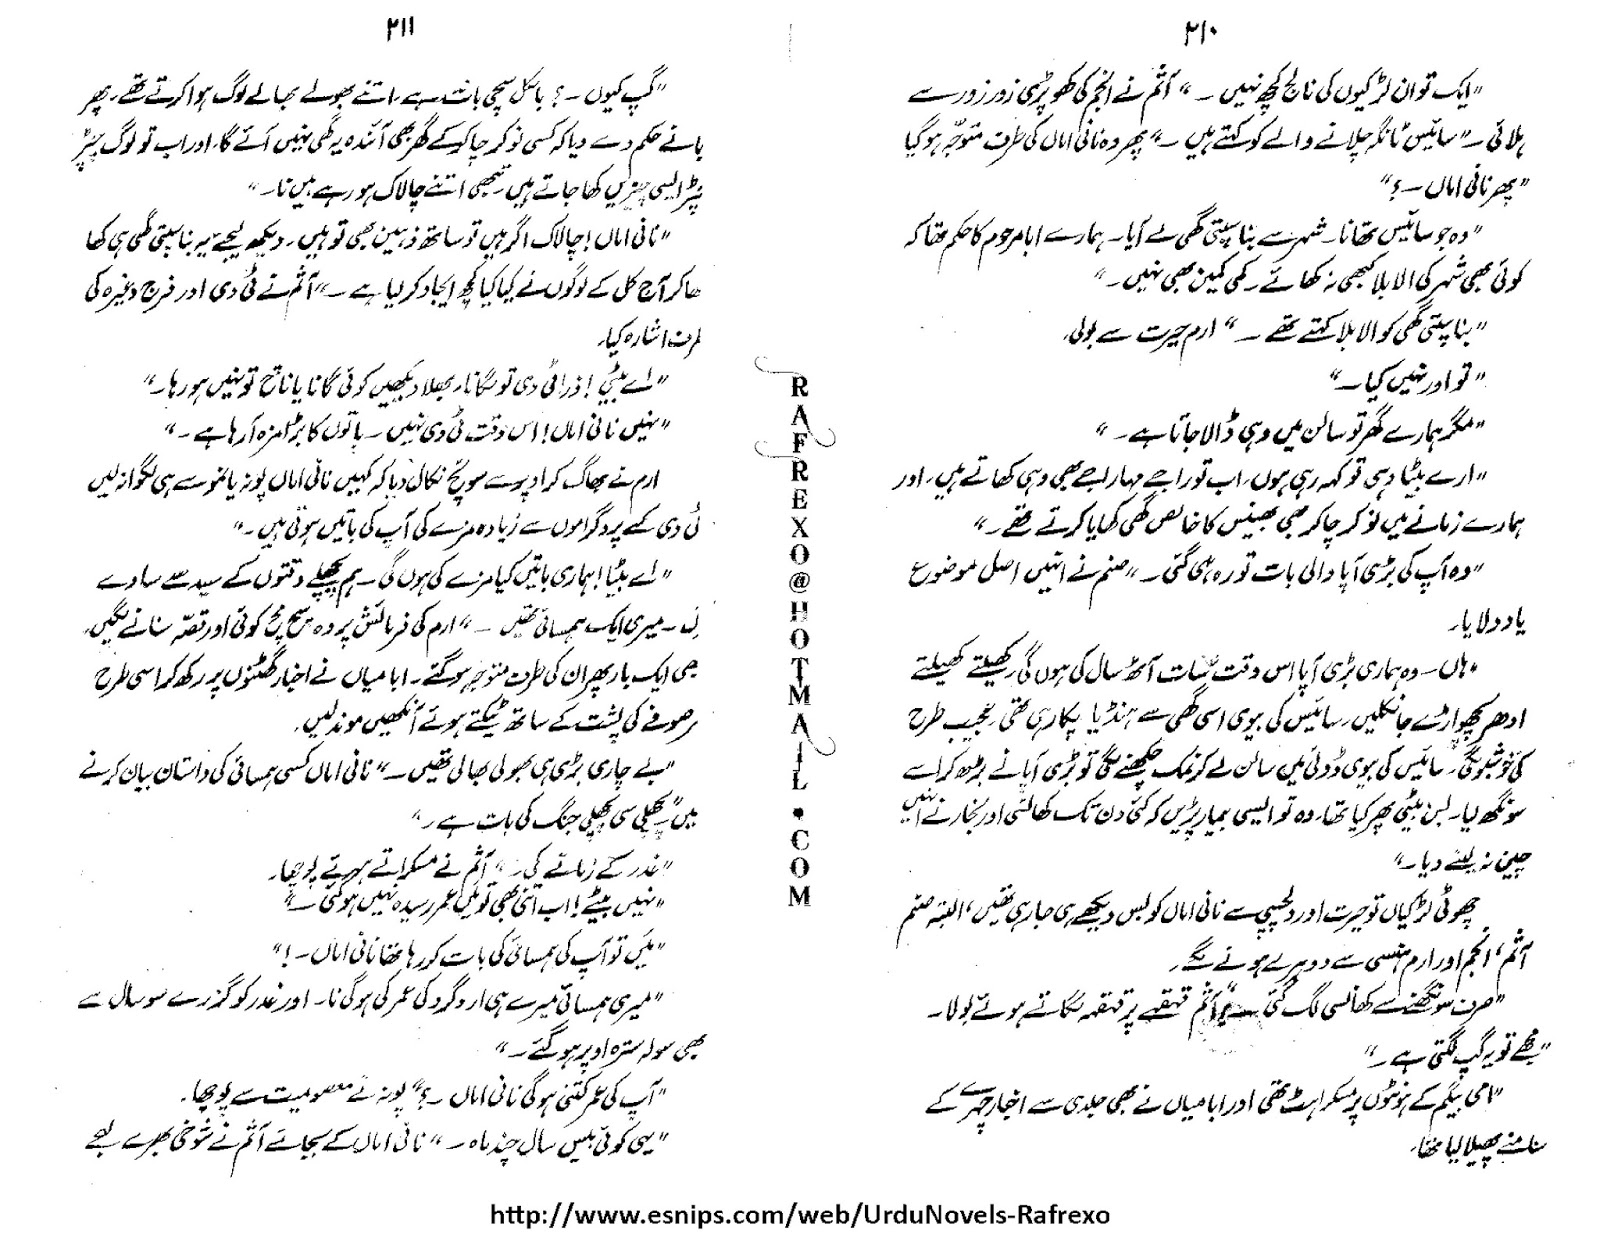 ۲۱۰
"ایک تو ان لڑکیوں کی نالج کچھ نہیں ۔" آثم نے انجم کی کھوپڑی زور زور سے
ہلائی ۔ "سائیس ٹانگہ چلانے والے کو کہتے ہیں ۔" پھر وہ نانی اماں کی طرف متوجّہ ہو گیا
"پھر نانی اماں ۔؟"
"وہ جو سائیس تھا نا۔ شہر سے بناسپتی گھی لے آیا۔ ہمارے ابا مرحوم کا حکم تھا کہ
کوئی بھی شہر کی الا بلا کبھی نہ کھائے ۔ کمی کمین بھی نہیں ۔"
"بناسپتی گھی کو الا بلا کہتے تھے ۔" ارم حیرت سے بولی۔
"تو اور نہیں کیا ۔"
"مگر ہمارے گھر تو سالن میں وہی ڈالا جاتا ہے ۔"
"ارے بیٹا وہی تو کہہ رہی ہوں۔ اب تو راجے مہاراجے بھی وہی کھاتے ہیں۔ اور
ہمارے زمانے میں نوکر چاکر بھی بھینس کا خالص گھی کھایا کرتے تھے ۔"
"وہ آپ کی بڑی آپا والی بات تو رہ ہی گئی ۔" صنم نے انہیں اصل موضوع
یاد دلایا۔
"ہاں ۔ وہ ہماری بڑی آپا اس وقت سات آٹھ سال کی ہوں گی کھیلتے کھیلتے
ادھر پچھواڑے جا نکلیں۔ سائیس کی بیوی اسی گھی سے ہنڈیا پکا رہی تھی۔ عجیب طرح
کی خوشبو تھی۔ سائیس کی بیوی ڈوئی میں سالن لے کر نمک چکھنے لگی تو بڑی آپا نے بڑھ کر اسے
سونگھ لیا۔ بس بیٹی پھر کیا تھا۔ وہ تو ایسی بیمار پڑیں کہ کئی دن تک کھانسی اور بخار نے انہیں
چین نہ لینے دیا ۔"
چھوٹی لڑکیاں تو حیرت اور دلچسپی سے نانی اماں کو بس دیکھے ہی جا رہی تھیں، البتہ صنم
آثم، انجم اور ارم ہنسی سے دوہرے ہونے لگے۔
"صرف سونگھنے سے کھانسی لگ گئی ۔" آثم قہقہے پر قہقہہ لگاتے ہوئے بولا ۔
"مجھے تو یہ گپ لگتی ہے ۔"
"امی بیگم کے ہونٹوں پر مسکراہٹ تھی اور ابا میاں نے بھی جلدی سے اخبار چہرے کے
سامنے پھیلا لیا تھا۔
۲۱۱
"گپ کیوں ۔؟ بالکل سچی بات ہے۔ اتنے بھولے بھالے لوگ ہوا کرتے تھے۔ پھر
بانے حکم دے دیا کہ کسی نوکر چاکر کے گھر بھی آئندہ یہ گھی نہیں آئے گا۔ اور اب تو لوگ چڑ
پڑ ایسی چیزیں کھا جاتے ہیں۔ تبھی اتنے چالاک ہو رہے ہیں نا۔"
"نانی اماں! چالاک اگر ہیں تو ساتھ ذہین بھی تو ہیں۔ دیکھ لیجیے یہ بناسپتی گھی ہی کھا
ھا کر آج کل کے لوگوں نے کیا کیا کچھ ایجاد کر لیا ہے ۔" آثم نے ٹی وی اور فرج وغیرہ کی
طرف اشارہ کیا۔
"اے بیٹی! ذرا ٹی وی تو لگانا۔ بھلا دیکھیں کوئی گانا یا ناچ تو نہیں ہو رہا۔"
"نہیں نانی اماں! اس وقت ٹی وی نہیں ۔ باتوں کا بڑا مزہ آ رہا ہے ۔"
ارم نے بھاگ کر اوپر سے سوئچ نکال دیا کہ کہیں نانی اماں پونہ یا منو سے ہی لگوا نہ لیں
ٹی وی کے پروگراموں سے زیادہ مزے کی آپ کی باتیں ہوتی ہیں ۔"
"اے بیٹا! ہماری باتیں کیا مزے کی ہوں گی ۔ ہم پچھلے وقتوں کے سیدھے سادے
۔ میری ایک ہمسائی تھیں ۔" ارم کی فرمائش پر وہ سچ مچ کوئی اور قصّہ سنانے لگیں۔
ھی ایک بار پھر ان کی طرف متوجہ ہو گئے۔ ابا میاں نے اخبار گھٹنوں پر رکھ کر اسی طرح
رصوفے کی پشت کے ساتھ ٹیکتے ہوئے آنکھیں موند لیں۔
"بے چاری بڑی ہی بھولی بھالی تھیں ۔" نانی اماں کسی ہمسائی کی داستان بیان کرنے
یں" پچھلی سی پچھلی جنگ کی بات ہے ۔"
"غدر کے زمانے کی ۔" آثم نے مسکراتے ہوئے پوچھا۔
"نہیں بیٹے! اب اتنی بھی تو میں عمر رسیدہ نہیں ہو گئی ۔"
"میں تو آپ کی ہمسائی کی بات کر رہا تھا نانی اماں ۔!"
"میری ہمسائی میرے ہی ارد گرد کی عمر کی ہو گی نا۔ اور غدر کو گزرے سو سال سے
بھی سولہ سترہ اوپر ہو گئے ۔"
"آپ کی عمر کتنی ہو گی نانی اماں ۔؟" پونہ نے معصومیت سے پوچھا۔
"یہی کوئی بیس سال چند ماہ ۔" نانی اماں کے بجائے آثم نے شوخی بھرے لہجے
RAFREXO@HOTMAIL.COM
http://www.esnips.com/web/UrduNovels-Rafrexo